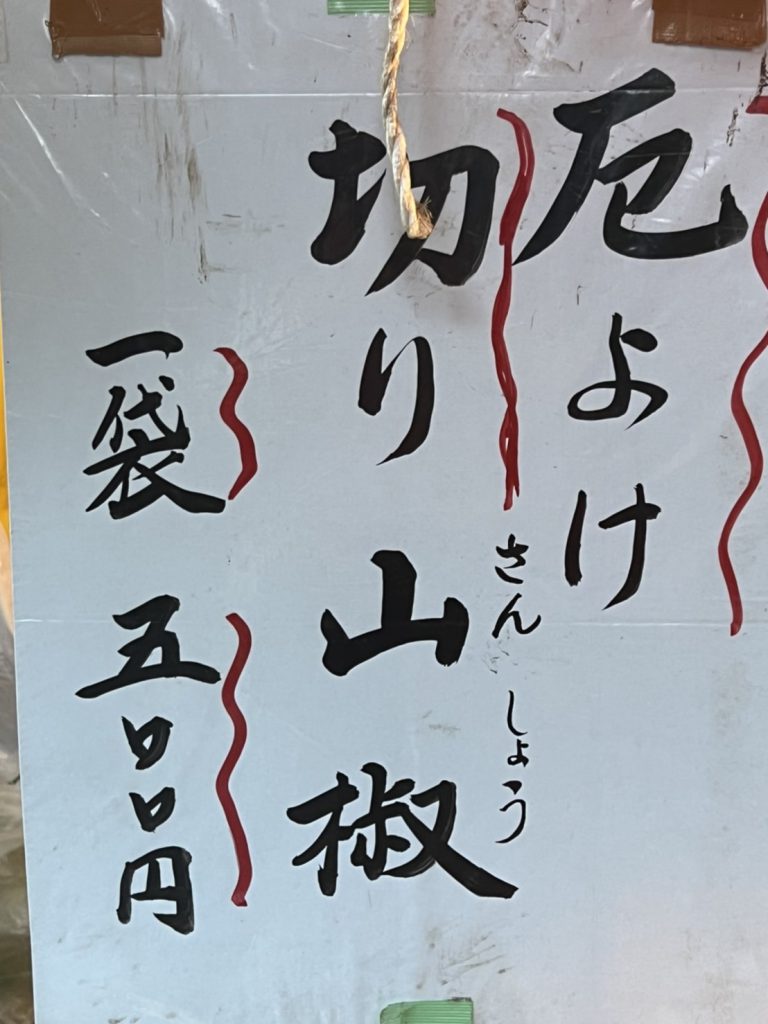 厄よけ
切り山椒
さんしょう
一袋 五〇〇円